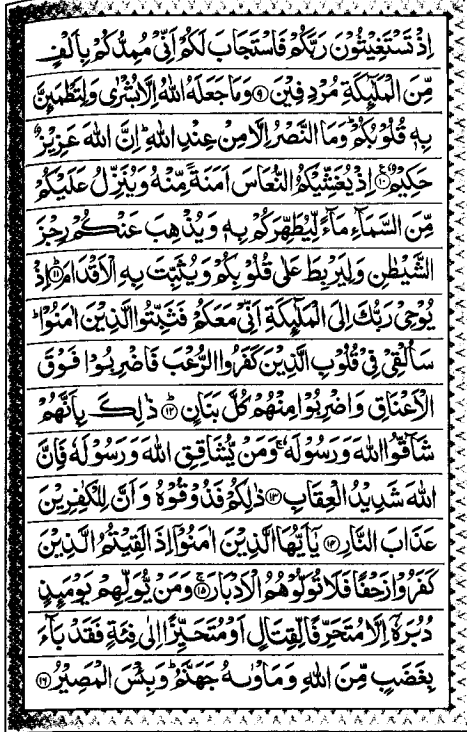 اِذْ تَسْتَغِيْثُوْنَ رَبَّكُمْ فَاسْتَجَابَ لَكُمْ اَنِّىْ مُمِدُّكُمْ بِاَلْفٍ
مِّنَ الْمَلٰٓئِكَةِ مُرْدِفِيْنَ ۹ وَمَا جَعَلَهُ اللّٰهُ اِلَّا بُشْرٰى وَلِتَطْمَئِنَّ
بِهٖ قُلُوْبُكُمْ ؕ وَمَا النَّصْرُ اِلَّا مِنْ عِنْدِ اللّٰهِ ؕ اِنَّ اللّٰهَ عَزِيْزٌ
حَكِيْمٌ ۱۰ اِذْ يُغَشِّيْكُمُ النُّعَاسَ اَمَنَةً مِّنْهُ وَيُنَزِّلُ عَلَيْكُمْ
مِّنَ السَّمَآءِ مَآءً لِّيُطَهِّرَكُمْ بِهٖ وَيُذْهِبَ عَنْكُمْ رِجْزَ
الشَّيْطٰنِ وَلِيَرْبِطَ عَلٰى قُلُوْبِكُمْ وَيُثَبِّتَ بِهِ الْاَقْدَامَ ؕ ۱۱ اِذْ
يُوْحِىْ رَبُّكَ اِلَى الْمَلٰٓئِكَةِ اَنِّىْ مَعَكُمْ فَثَبِّتُوا الَّذِيْنَ اٰمَنُوْا ؕ
سَاُلْقِىْ فِىْ قُلُوْبِ الَّذِيْنَ كَفَرُوا الرُّعْبَ فَاضْرِبُوْا فَوْقَ
الْاَعْنَاقِ وَاضْرِبُوْا مِنْهُمْ كُلَّ بَنَانٍ ؕ ۱۲ ذٰلِكَ بِاَنَّهُمْ
شَآقُّوا اللّٰهَ وَرَسُوْلَهٗ ۚ وَمَنْ يُّشَاقِقِ اللّٰهَ وَرَسُوْلَهٗ فَاِنَّ
اللّٰهَ شَدِيْدُ الْعِقَابِ ۱۳ ذٰلِكُمْ فَذُوْقُوْهُ وَاَنَّ لِلْكٰفِرِيْنَ
عَذَابَ النَّارِ ۱۴ يٰٓاَيُّهَا الَّذِيْنَ اٰمَنُوْٓا اِذَا لَقِيْتُمُ الَّذِيْنَ
كَفَرُوْا زَحْفًا فَلَا تُوَلُّوْهُمُ الْاَدْبَارَ ۚ ۱۵ وَمَنْ يُّوَلِّهِمْ يَوْمَئِذٍ
دُبُرَهٗٓ اِلَّا مُتَحَرِّفًا لِّقِتَالٍ اَوْ مُتَحَيِّزًا اِلٰى فِئَةٍ فَقَدْ بَآءَ
بِغَضَبٍ مِّنَ اللّٰهِ وَمَاْوٰىهُ جَهَنَّمُ ؕ وَبِئْسَ الْمَصِيْرُ ۱۶